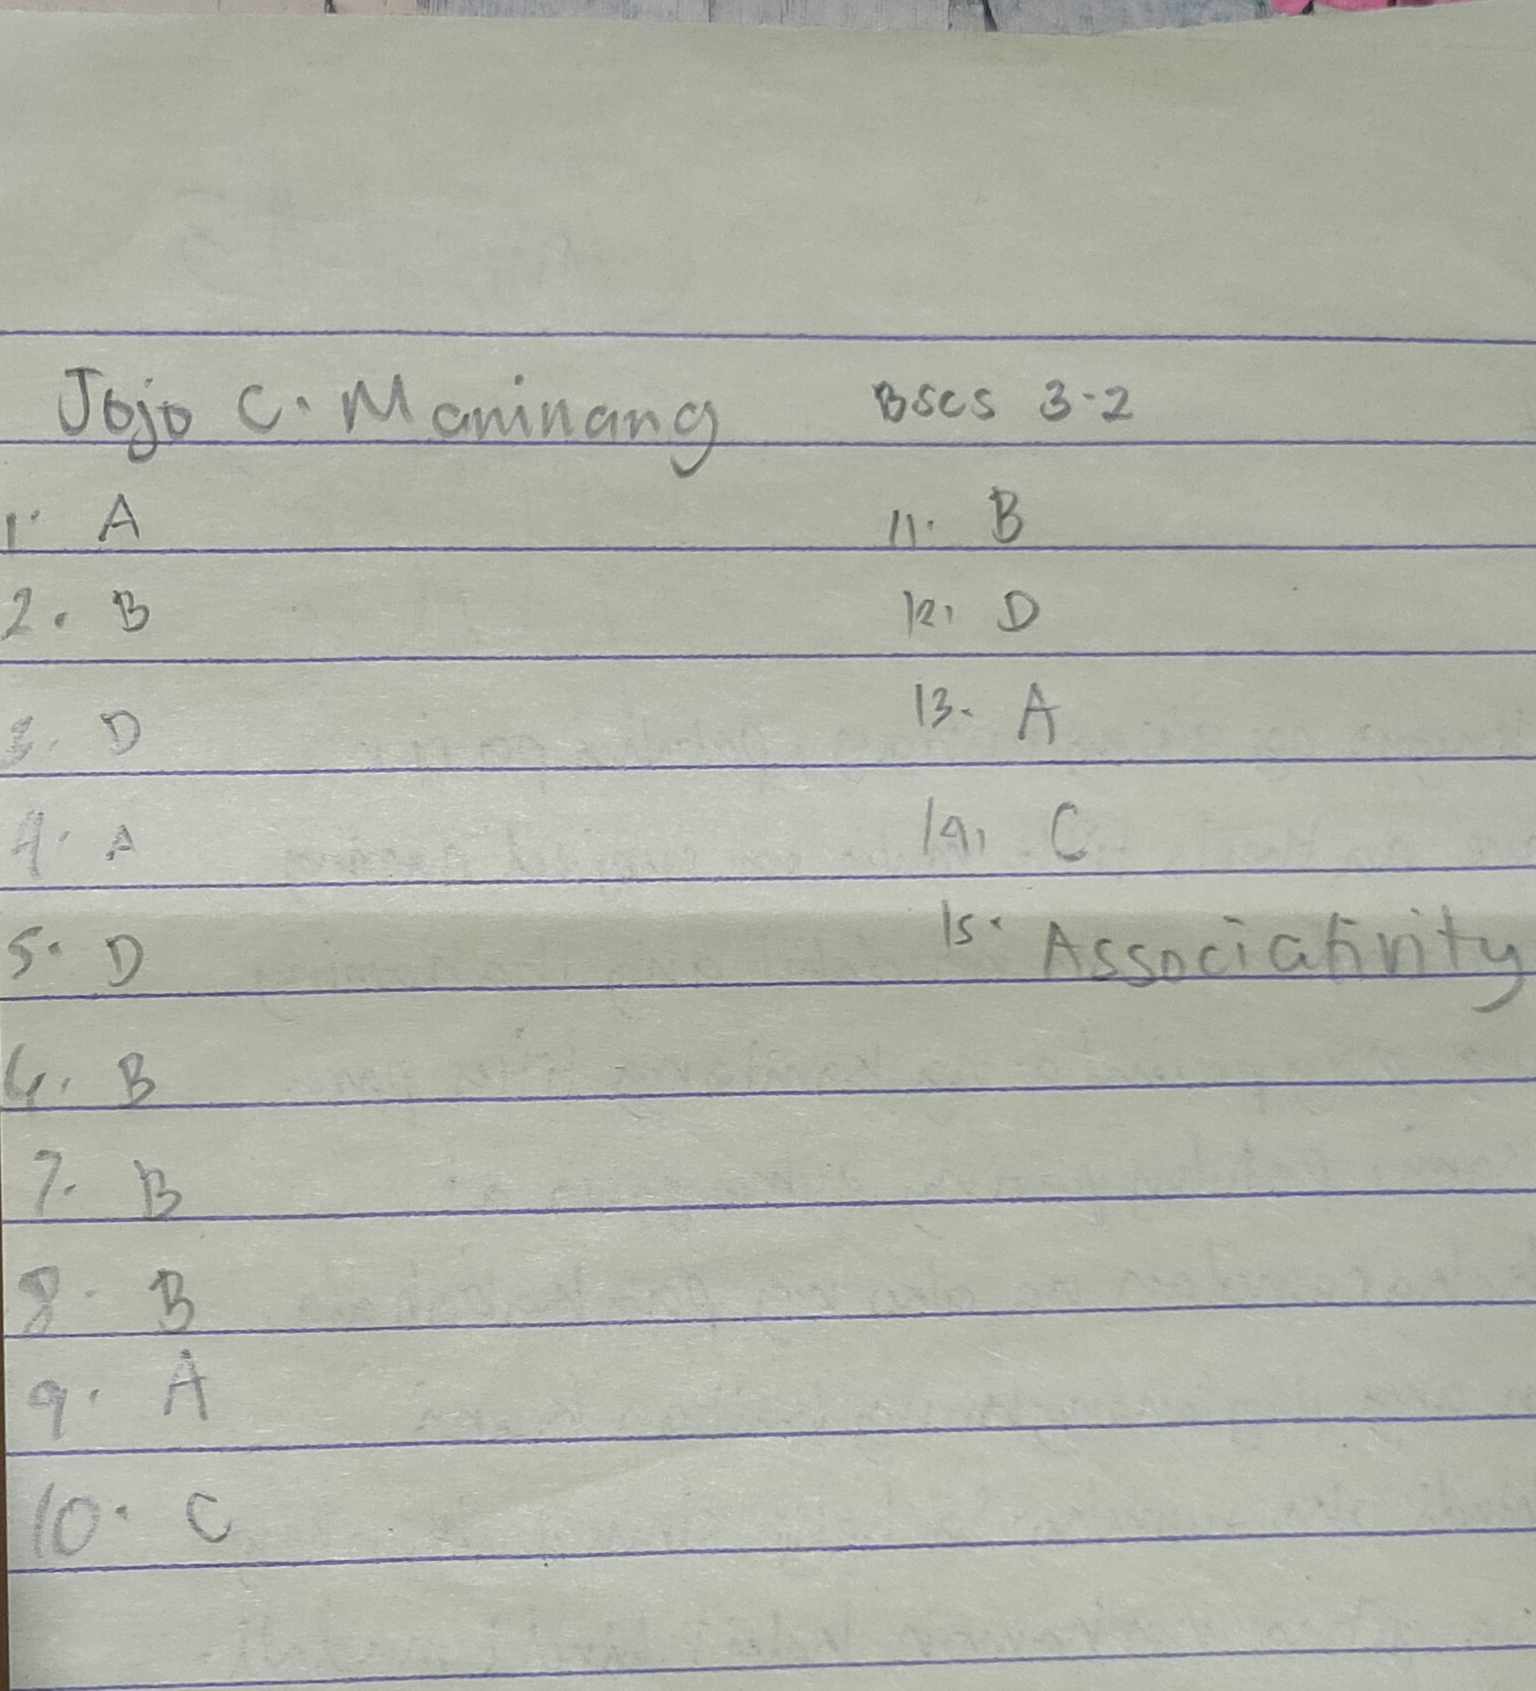 Jojo C. Maninang BSCS 3-2
1. A
2. B
3. D
4. A
5. D
6. B
7. B
8. B
9. A
10. C
11. B
12. D
13. A
14. C
15. Associativity